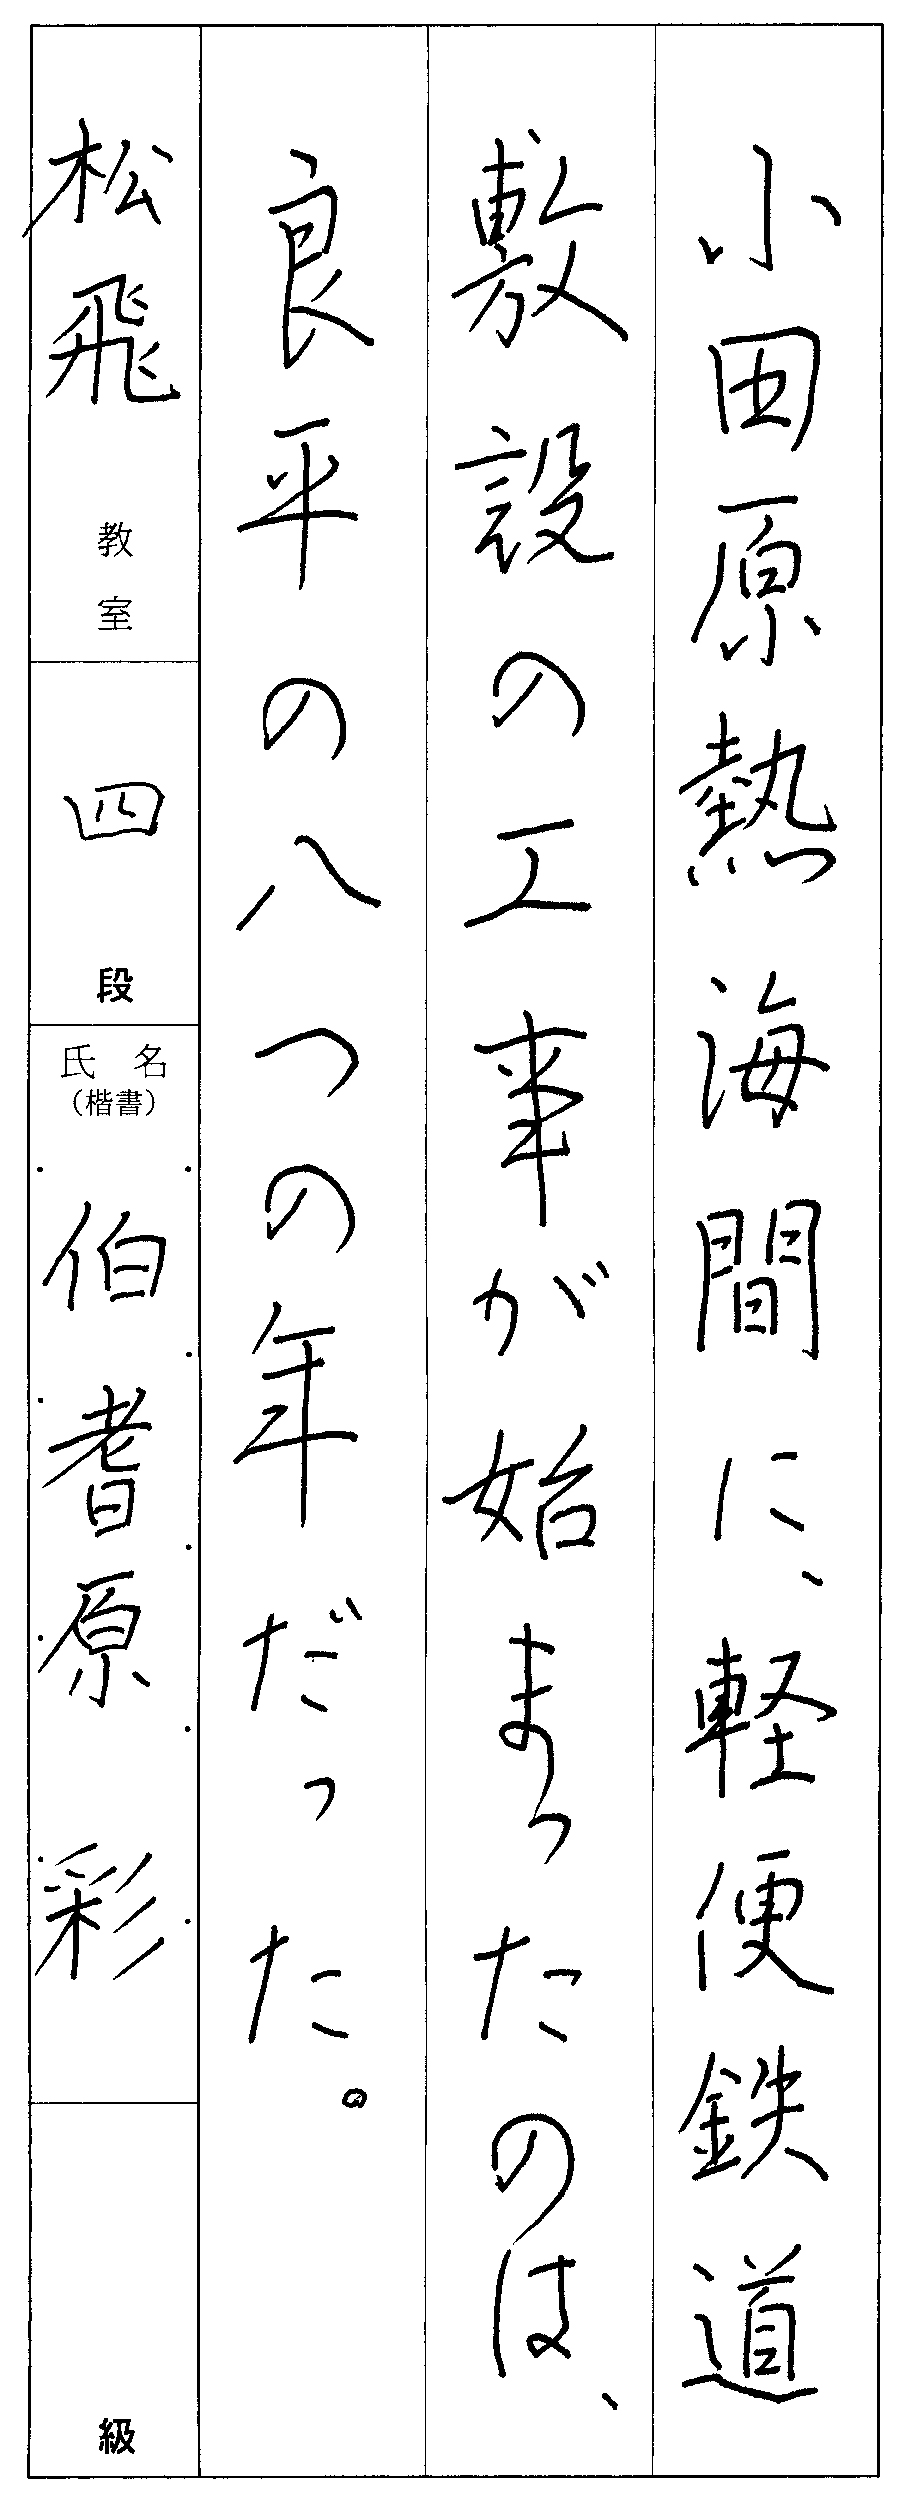 小田原熱海間に、軽便鉄道
敷設の工事が始まったのは、
良平の八つの年だった。
松飛教室
四段
氏名
（楷書）
伯耆原 彩
級